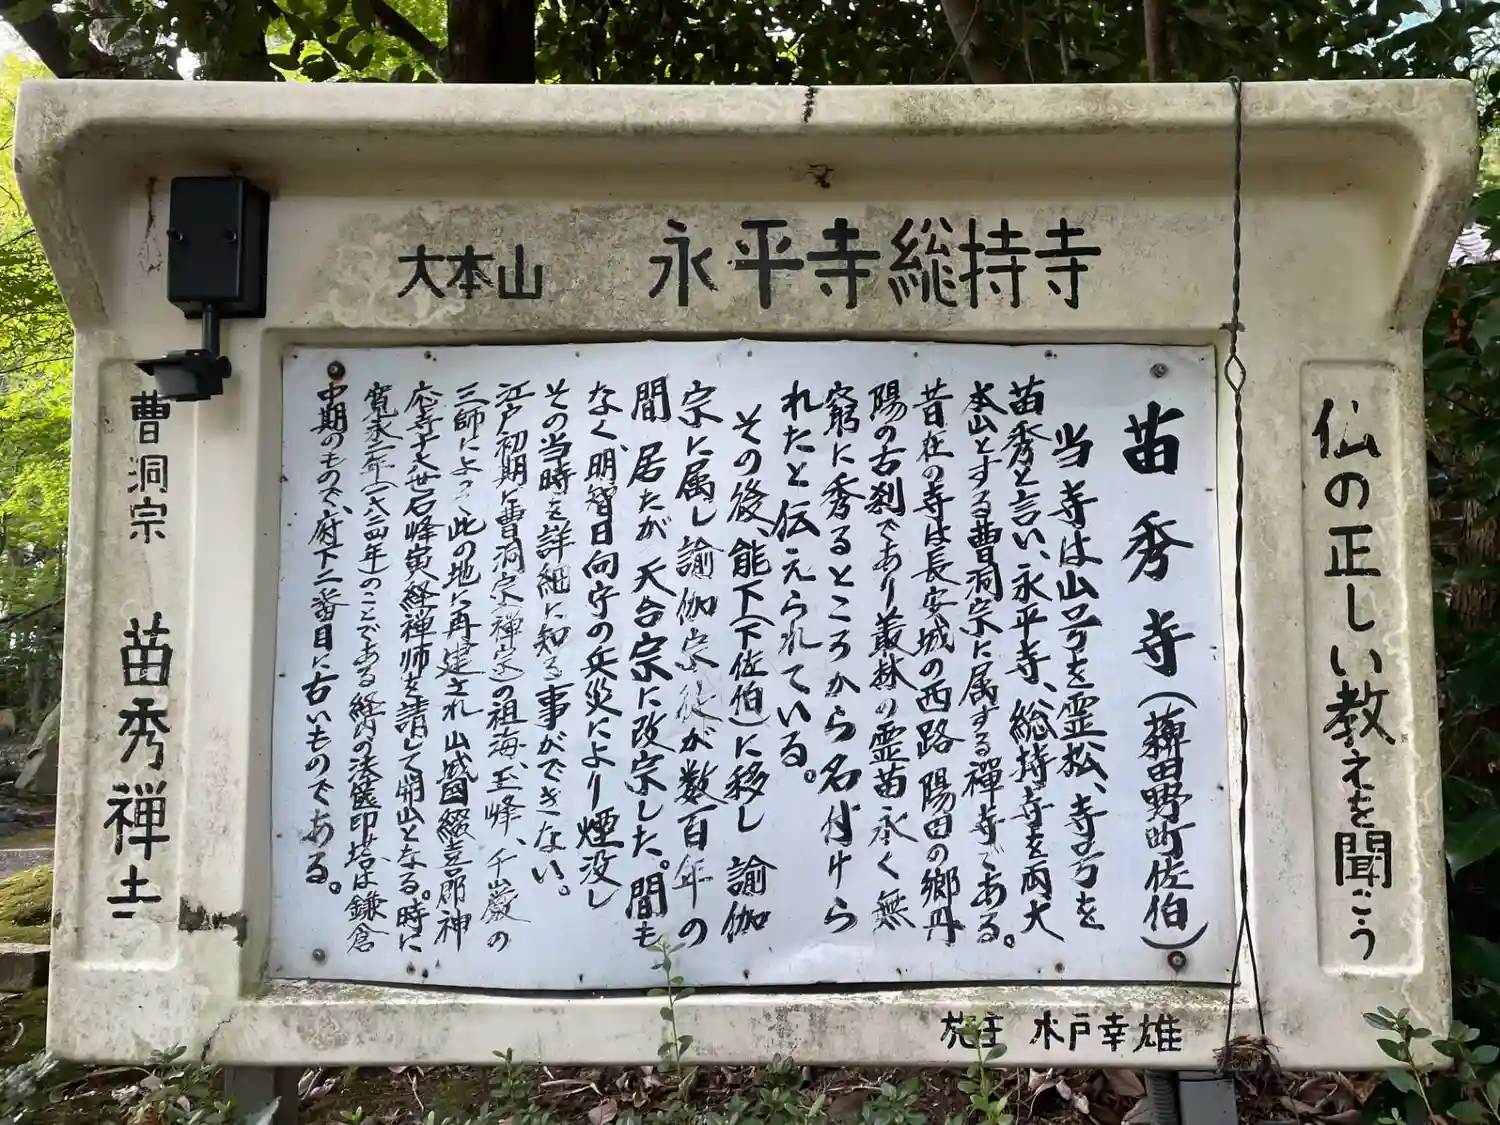 大本山 永平寺総持寺
仏の正しい教えを聞こう
苗秀寺(薭田野町佐伯)
当寺は山号を霊松、寺号を
苗秀と言い、永平寺、総持寺を両大
本山とする曹洞宗に属する禅寺である。
昔在の寺は長安城の西路 陽田の郷丹
陽の古刹であり叢林の霊苗永く無
窮に秀るところから名付けら
れたと伝えられている。
その後、能下(下佐伯)に移し 諭伽
宗に属し諭伽宗徒が数百年の
間 居たが 天台宗に改宗した。間も
なく、明智日向守の兵災により煙没し
その当時を詳細に知る事ができない。
江戸初期に曹洞宗(禅宗)の祖海、玉峰、千巌の
三師によって此の地に再建され 山城國綴喜郡神
応寺十六世石峰寅経禅师を請して開山となる。時に
寛永元年(一六二四年)のことである 経内の法篋印塔は鎌倉
中期のもので、府下二番目に古いものである。
曹洞宗 苗秀禅寺
施主 水戸幸雄